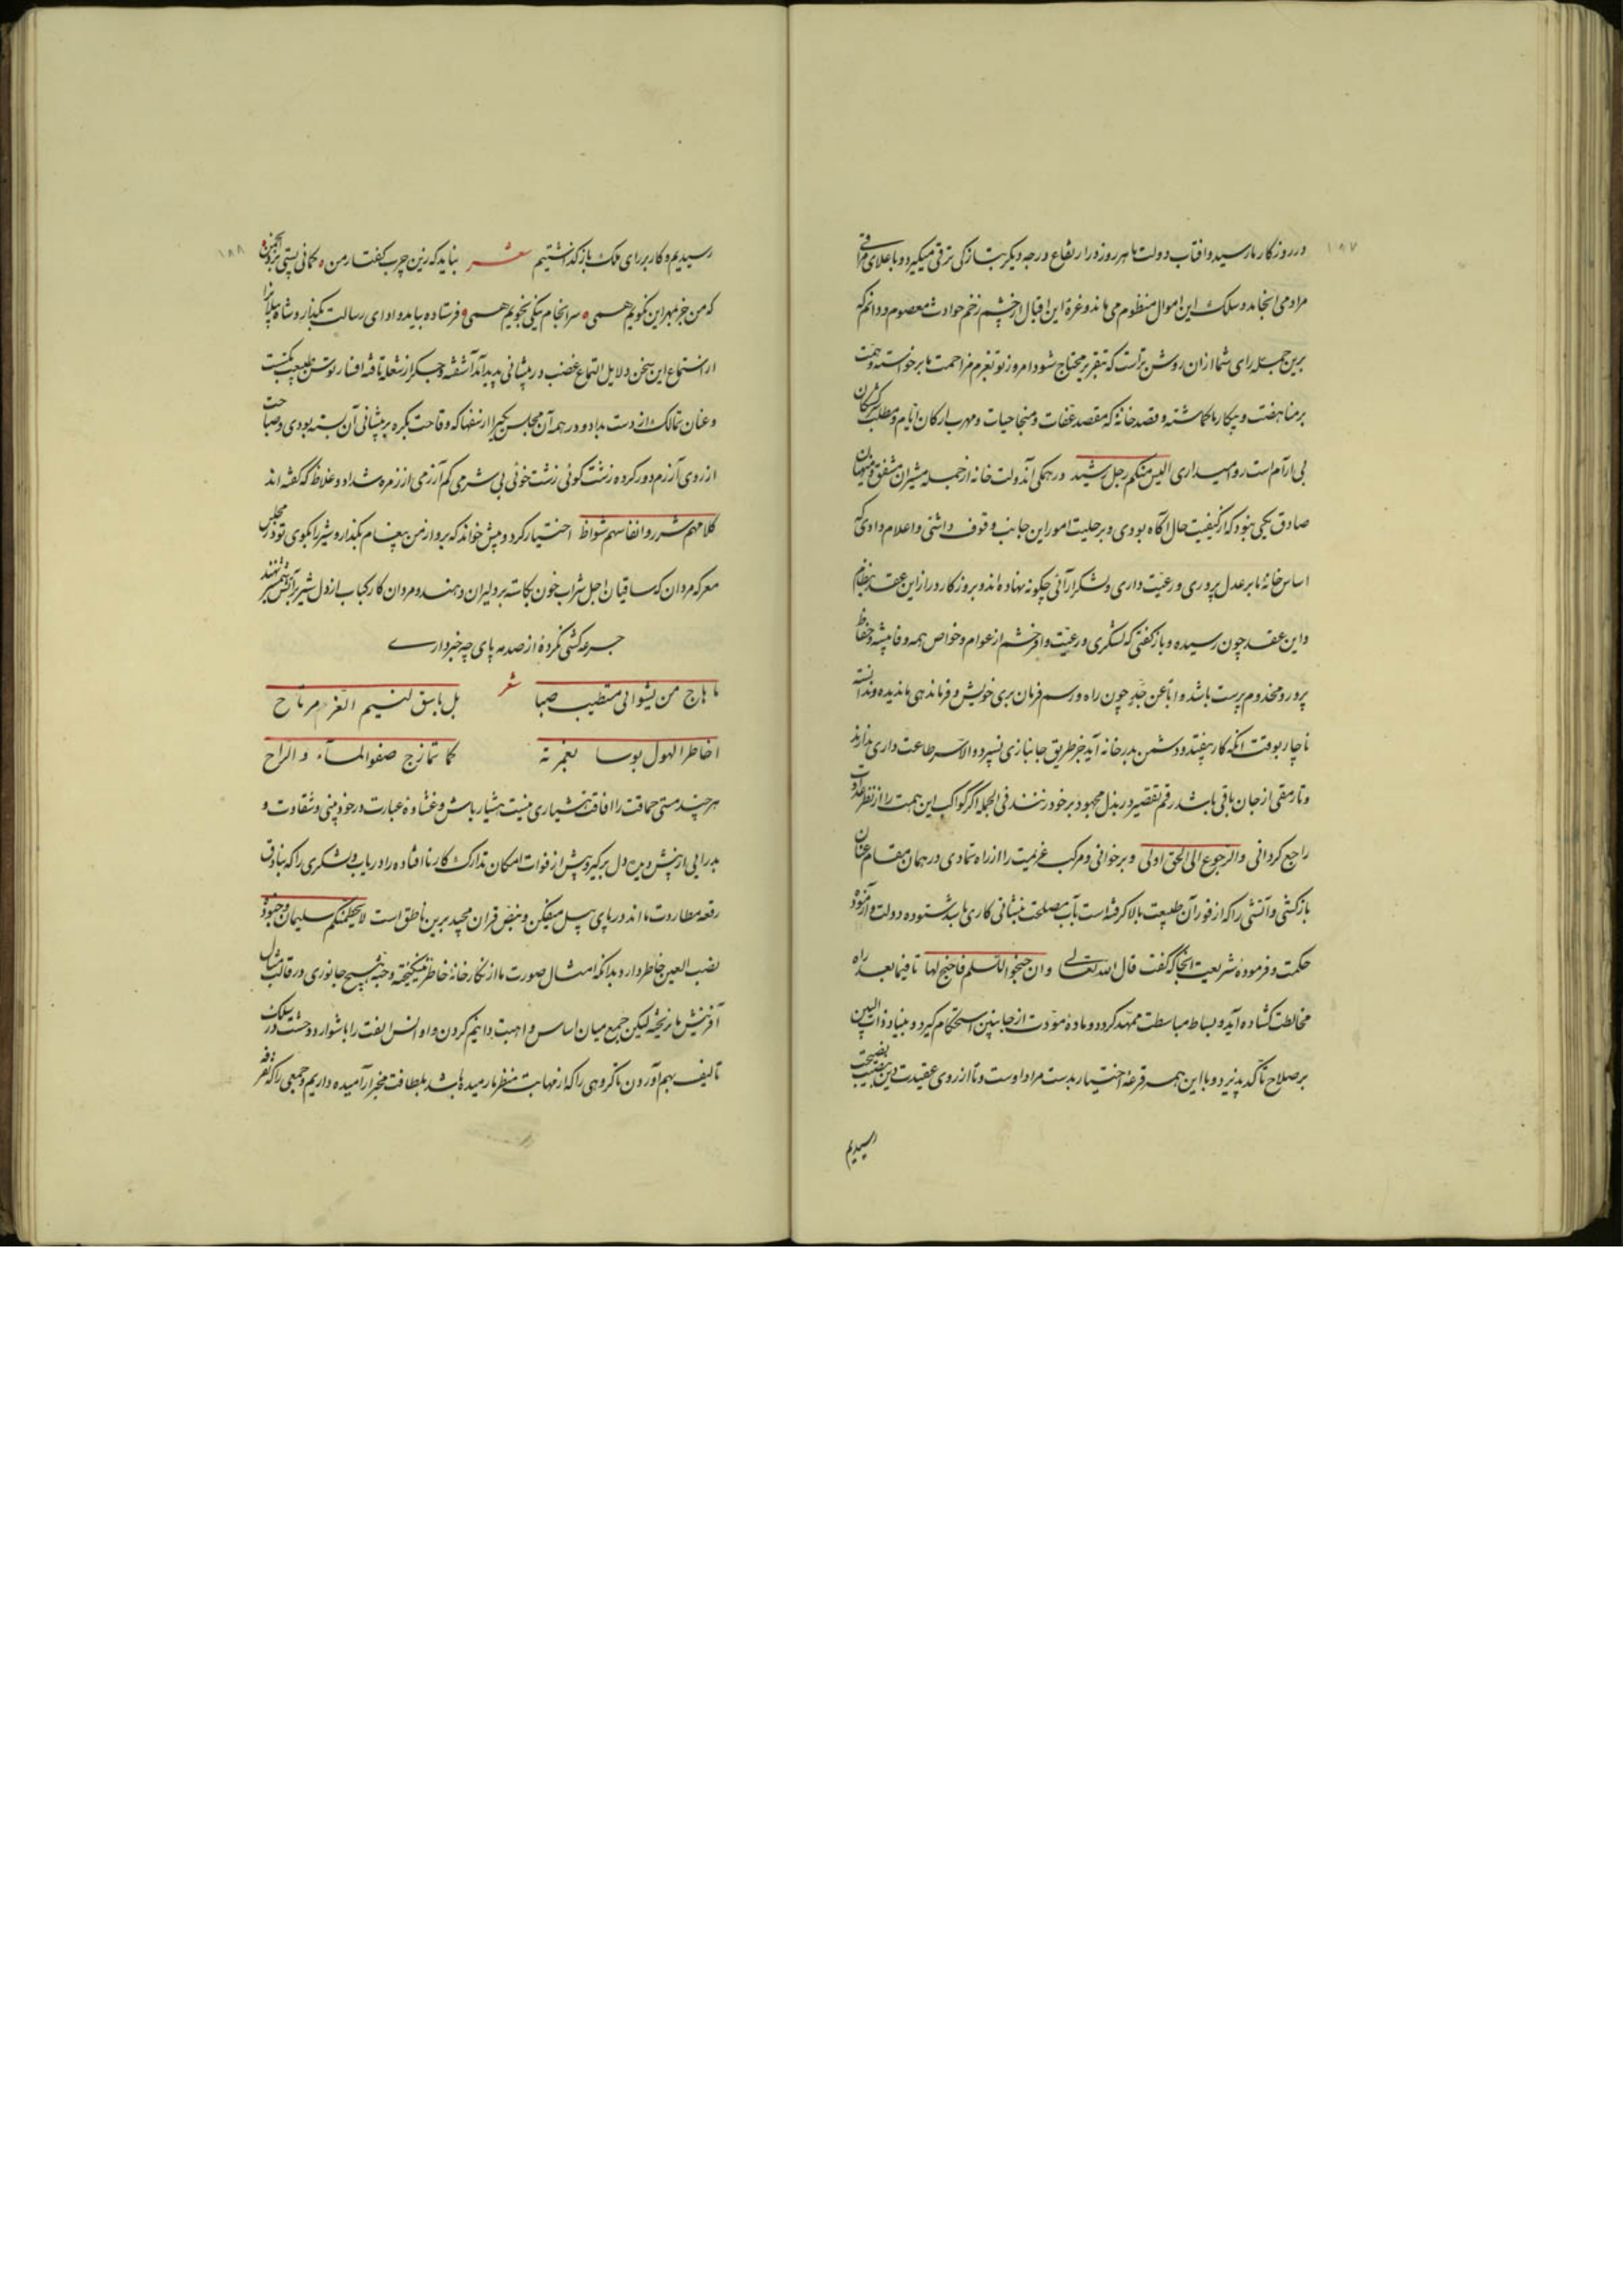 ۱۸۷
در روزگار ما رسید و افتاب دولت ما هر روز در ارتفاع درجه دیگر بتازگی ترقی میگیرد و باعلای مراقی
مراد می انجامد و سلک این اموال منظوم می ماند و غرهٔ این اقبال از چشم زخم حوادث معصوم و دانم که
برین جمله رای شما ازان روشن تراست که بتقریر محتاج شود امروز تو بعزم مزاحمت ما برخواسته و همت
بر مناهضت و پیکار ما گماشته و قصد خانهٔ که مقصد عفات و منجا حیات و مهرب ارکان ایام و مطلب
بی ارام است روامیداری الیس منکم رجل رشید در همگی آن دولت خانه از جمله مشیران مشفق و منهیان
صادق یکی نبود که از کیفیت حال آگاه بودی و بر حلیت امور این جانب وقوف داشتی و اعلام دادی که
اساس خانهٔ ما بر عدل پروری و رعیت داری و لشکر ارائی چگونه نهاده اند و بروزگار دراز این عقد بنظام
و این عقد چون رسیده و باز گفتی که لشکری و رعیت و از خشم از عوام و خواص همه وفا پیشه و حفاظ
پرور و مخدوم پرست باشد و اباً عن جدٍ چون راه و رسم فرمان بری خویش و فرماندهی ما ندیده و ندانسته
ناچار بوقت انکه کار بیفتد و دشمن بدر خانه آید جز طریق جانبازی نسپرد و الا سر طاعت داری ندارند
و تا رمقی از جان باقی باشد رقم تقصیر در بذل مجهود بر خود نزنند فی الجمله اگر کواکب این همت را از نظر عداوت
راجع گردانی و الرجوع الی الحق اولی و برخوانی و مرکب عزیمت را از راه تمادی در همان مقام عنان
باز کشی و آتشی را که از فوران طبیعت بالا گرفته است بآب مصلحت بنشانی کاری باشد ستوده دولت و ازموده
حکمت و فرموده شریعت انجا که گفت قال الله تعالی و ان جنحوا للسلم فاجنح لها تا فیما بعد راه
مخالطت گشاده آید و بساط مباسطت ممهد گردد و مادهٔ مودت از جانبین استحکام گیرد و بنیاد ذات البین
بر صلاح تأکد پذیرد و با این همه قرعهٔ اختیار بدست مراد اوست و تا از روی عقیدت دین بنصیحت
رسیدیم
۱۸۸
رسیدیم و کار بر رای ملک باز گذاشتیم شعر نباید که زین چرب گفتار من کمانی بستی برد انجمن
که من جز بمهر این نگویم همی سرانجام نیکی بجویم همی فرستاده بیامد و ادای رسالت بگذارد شاه پیلان را
از استماع این سخن دلایل التماع غضب در پیشانی پدید آمد آشفته و جگر از شعله تافته افسار توسن طبیعت بگسست
و عنان تمالک از دست بداد و در همه آن مجالس یکی را از سفها که وقاحت بکره بر پیشانی آن بسته بودی و صباحت
از روی آزرم دور کرده زشت گوئی زشت خوئی بی شرمی کم آزرمی از زمرهٔ شداد و غلاظ که گفته اند
کلامهم شرر و انفاسهم شواظ اختیار کرد و پیش خواند که برو از من پیغام بگذار و شیر را بگوی تو در مجلس
معرکه مردان که ساقیان اجل شراب خون بکاسهٔ سر دلیران دهند و مردان کار کباب از دل شیر بر آتش شمشیر نهند
جرعه کشی نکردهٔ از صدمه پای چه خبرداری
ما هاج من نشوانی مستطیب صبا شعر بل باسق لنسیم العز مرتاح
اخاطر الهول بوسا بغمرته کما تمازج صفو المآء و الراح
هر چند مستی حماقت را افاقت هشیاری نیست هشیار باش و غشاوهٔ عبارت در خود بینی و شقاوت و
بدرایی از پیش دیدهٔ دل برگیر و پیش از فوات امکان تدارک کار نا افتاده را دریاب و لشکری را که بنادق
رقعه مطاردت ما اند در پای پیل میفکن و نص قران مجید برین ناطق است لا یحطمنکم سلیمان و جنوده
نصب العین خاطر دار و بدانکه امثال صورت ما از نگارخانهٔ خاطر نینگیخته و جثهٔ هیچ جانوری در قالب مثال
آفرینش ما نریخته لیکن جمع میان اساس و اهبت دانیم کردن و اوانس الفت را با شوارد وحشت در سلک
تالیف بهم آوردن تا گروهی را که از مهابت منظر ما رمیده باشد بلطافت مخبر آرامیده داریم و جمعی را که تفرقه